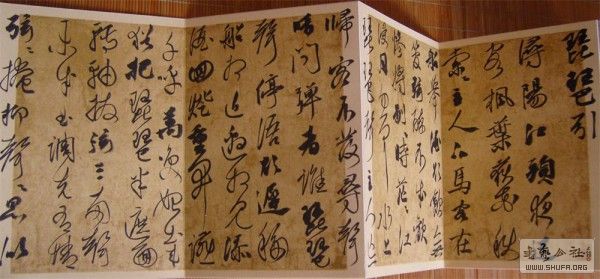 琵琶引
潯陽江頭夜送
客楓葉荻花秋
索〻主人下馬客在
船舉酒欲飲無
管絃醉不成歡
慘將別別時茫〻江
浸月忽聞水上
琵琶聲主人忘
歸客不發尋聲
暗問彈者誰琵琶
聲停語欲遲移
船相近邀相見添
酒回燈重開讌
千呼萬喚始出來
猶把琵琶半遮面
轉軸撥絃三兩聲
未成曲調先有情
絃〻掩抑聲〻思似
WWW.SHUFA.ORG